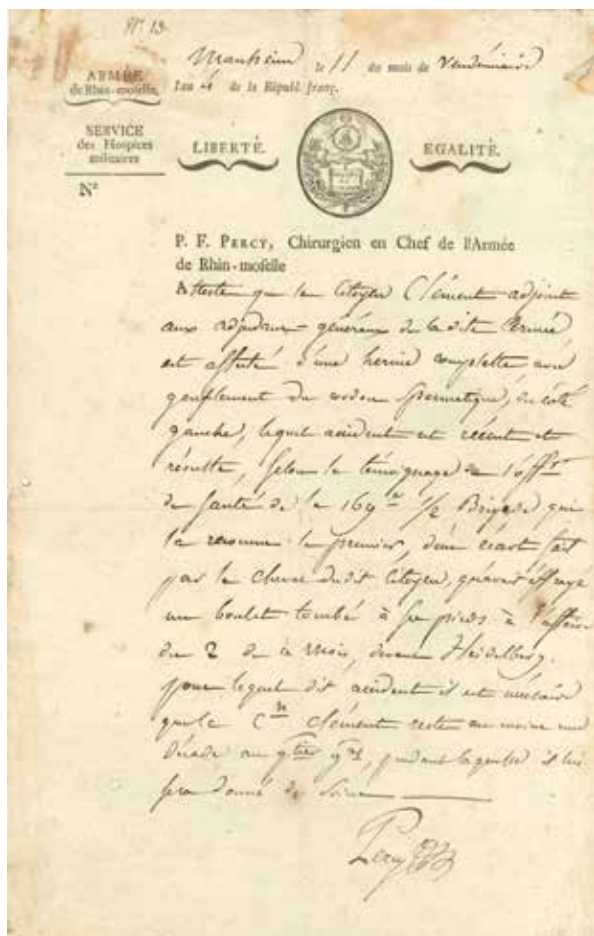 Nº 13
Manheim le 11 du mois de Vendémiaire
l'an 4 de la Républ. franç.
ARMÉE
de Rhin-moselle,
SERVICE
des Hospices
militaires
Nº
LIBERTÉ. EGALITÉ.
P. F. PERCY, Chirurgien en Chef de l'Armée
de Rhin-moselle
Atteste que le Citoyen Clément adjoint
aux adjudans généraux de la dite Armée
est affecté d'une hernie complette avec
gonflement du cordon spermatique, du côté
gauche, lequel accident est récent et
résulte, selon le témoignage de l'offr.
de santé de la 169e 1/2 Brigade qui
l'a reconnu le premier, d'un écart fait
par le cheval dudit Citoyen, qu'avait effrayé
un boulet tombé à ses pieds à l'affaire
du 2 de ce mois, devant Heidelberg.
pour lequel dit accident il est nécessaire
que le Cen Clément reste au moins une
Décade au qtier gal, pendant laquelle il lui
sera donné des soins
Percy